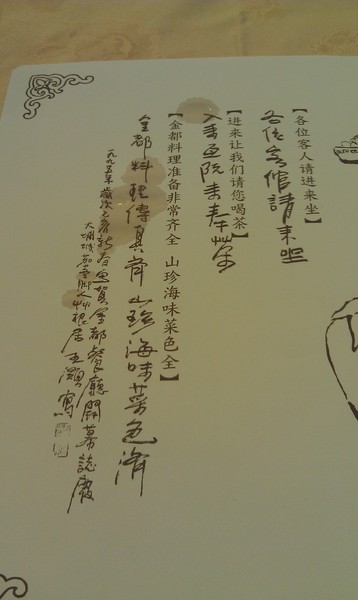 【各位客人请进来坐】
各位客倌請来坐
【进来让我们请您喝茶】
入来阮来奉茶
【金都料理准备非常齐全 山珍海味菜色全】
金都料理傳真齊 山珍海味菜色濟
一九九五年歲次乙亥 賀金都餐廳開幕誌慶
大埔城 艸根居 王灝寫